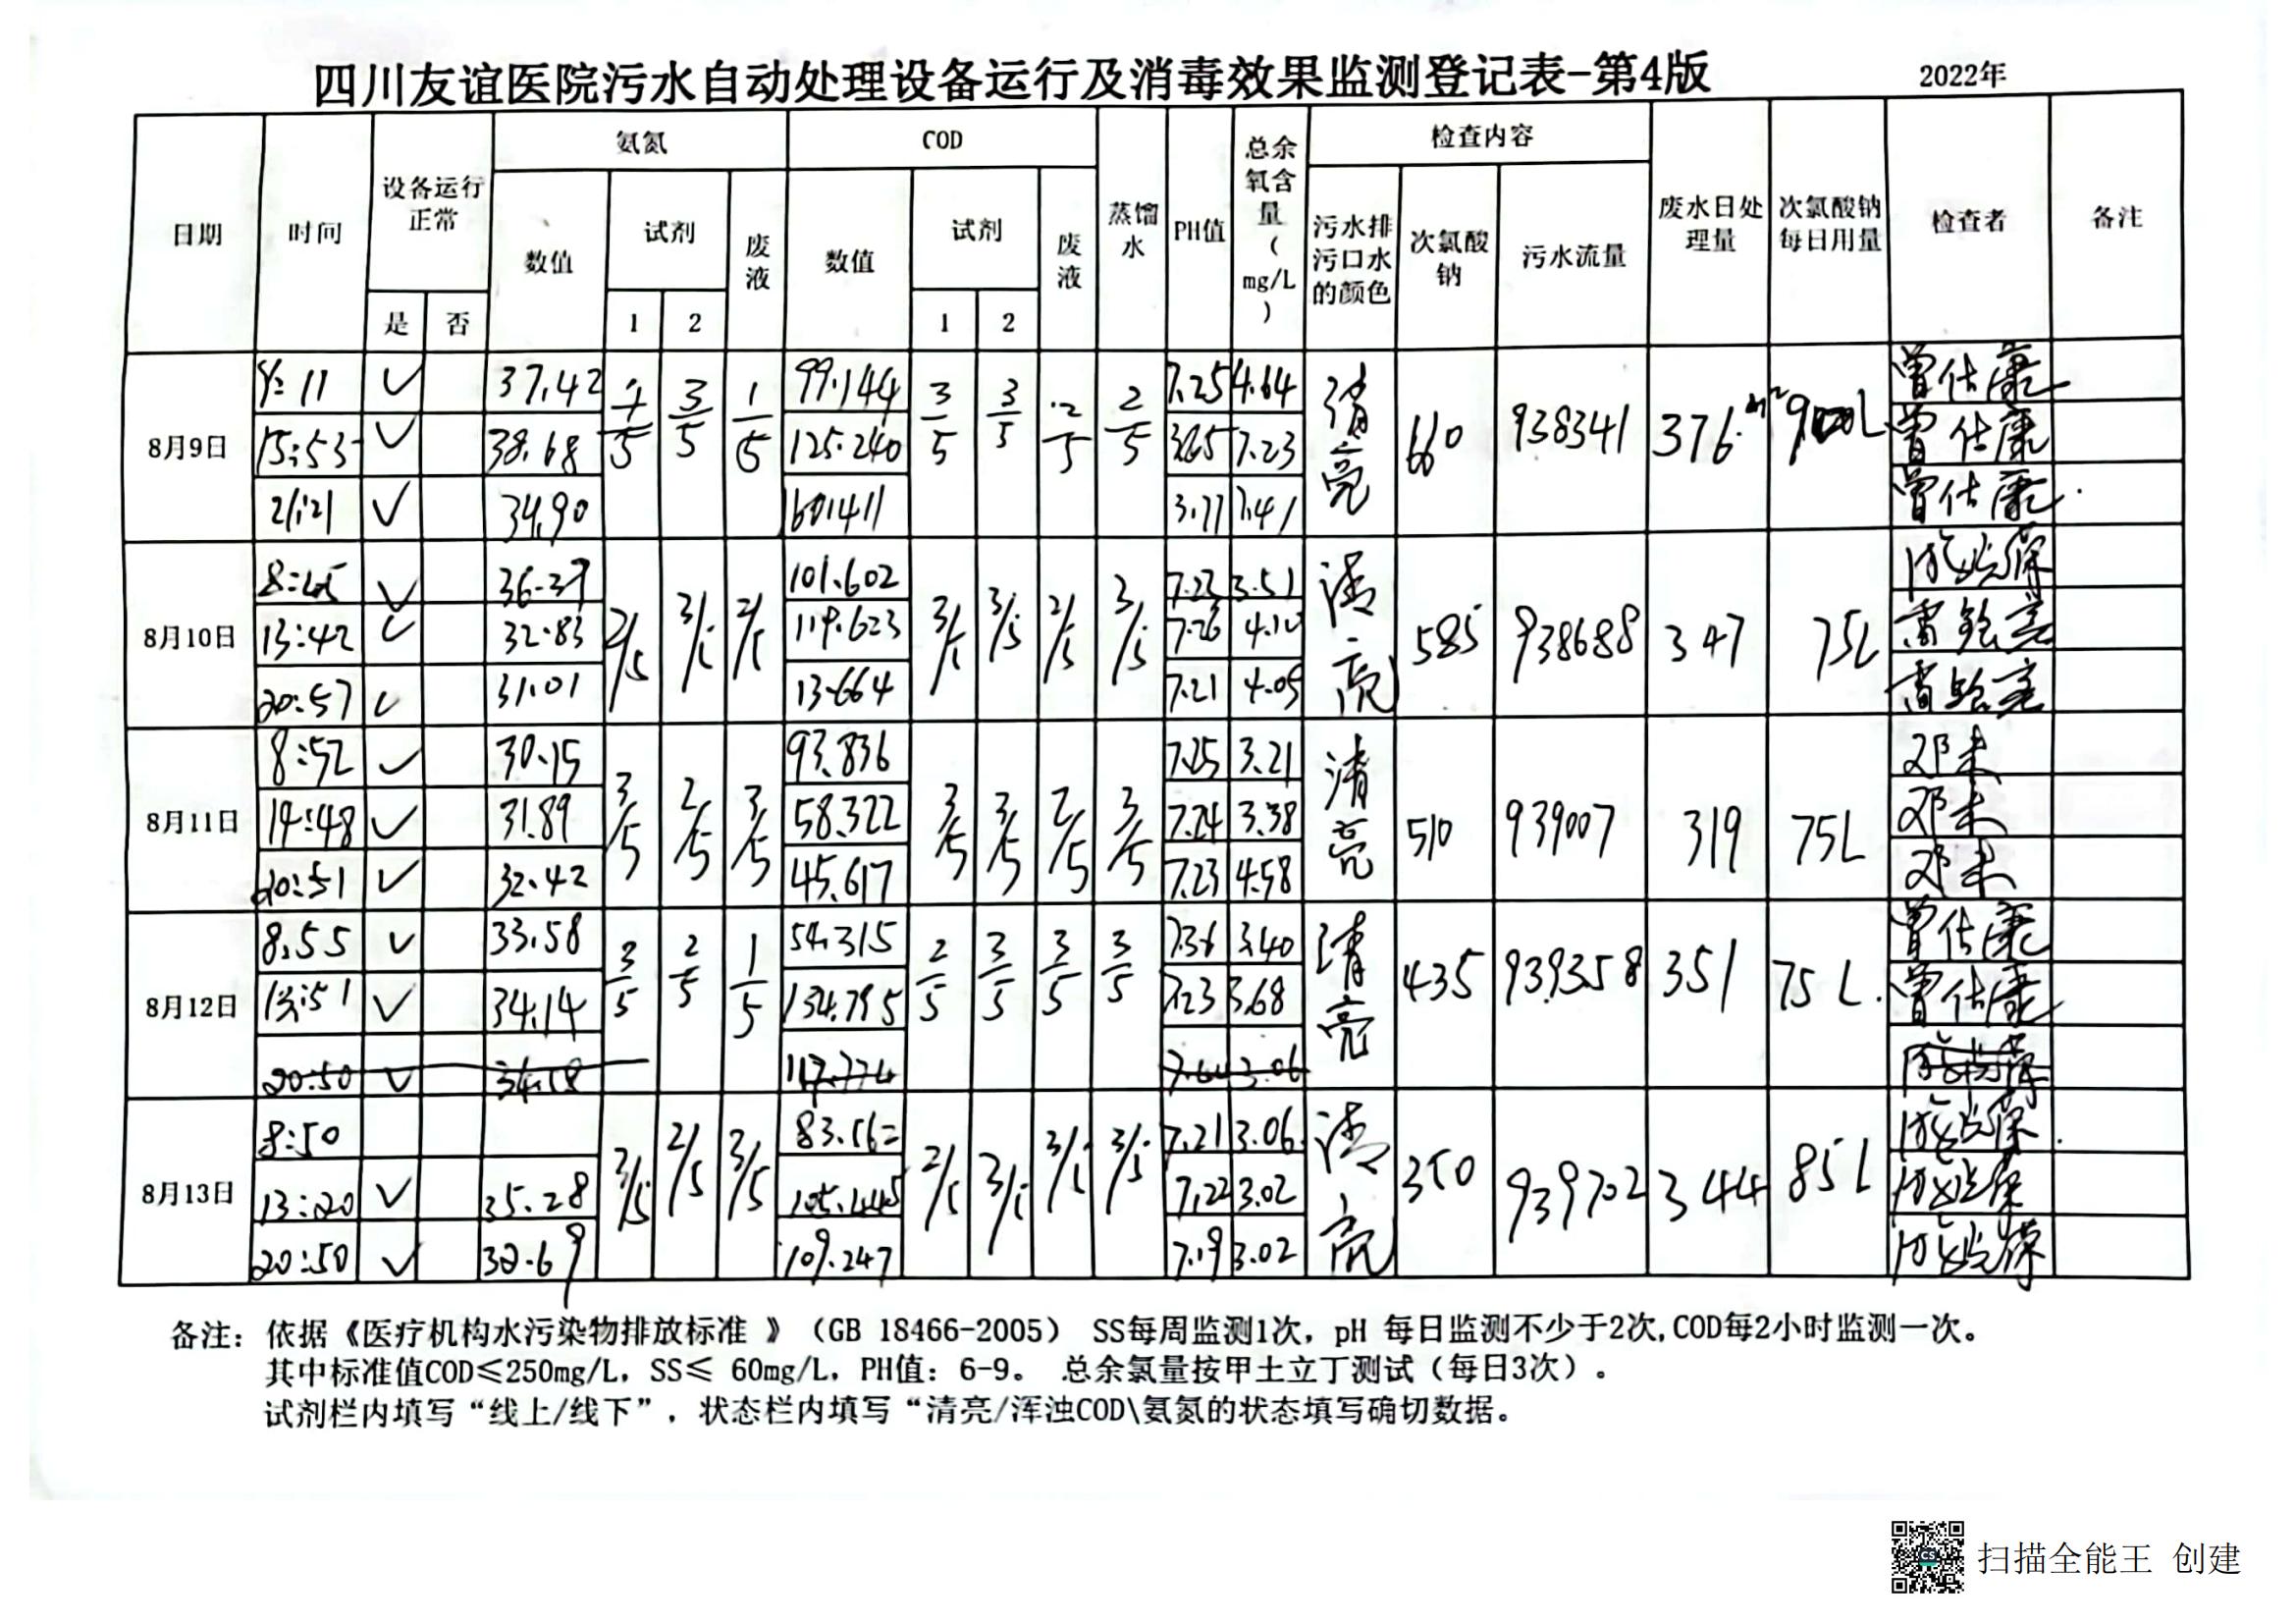 四川友谊医院污水自动处理设备运行及消毒效果监测登记表-第4版 2022年
日期 时间 设备运行正常 是 否 氨氮 数值 试剂 1 2 废液 COD 数值 试剂 1 2 废液 蒸馏水 PH值 总余氧含量(mg/L) 检查内容 污水排污口水的颜色 次氯酸钠 污水流量 废水日处理量 次氯酸钠每日用量 检查者 备注
8月9日 清亮 660 938341 376
:11 ✓ 37.42 4/5 3/5 1/5 99.144 3/5 3/5 2/5 2/5 7.25 4.64 曾仕康
15:53 ✓ 38.68 125.240 7.23 曾仕康
21:21 ✓ 34.90 7.41 曾仕康
8月10日 清亮 585 938688 347 75L
8:45 ✓ 36.39 2/5 3/5 2/5 101.602 3/5 3/5 2/5 3/5 7.23 3.51
13:42 ✓ 32.83 119.623 7.26 4.10
20:57 ✓ 31.01 13.664 7.21 4.05
8月11日 清亮 510 939007 319 75L
8:52 ✓ 30.15 3/5 2/5 3/5 93.836 3/5 3/5 2/5 3/5 7.25 3.21 邓未
14:48 ✓ 31.89 58.322 7.24 3.38 邓未
20:51 ✓ 32.42 45.617 7.23 4.58 邓未
8月12日 清亮 435 939358 351 75L.
8:55 ✓ 33.58 3/5 2/5 1/5 54.315 2/5 3/5 3/5 3/5 7.36 3.40 曾仕康
:51 ✓ 34.14 134.795 7.23 3.68 曾仕康
20:50 ✓ 3.06
8月13日 清亮 350 939702 344 85L
8:50 3/5 2/5 3/5 83.562 2/5 3/5 3/5 3/5 7.21 3.06
13:20 ✓ 35.28 105.445 7.22 3.02
20:50 ✓ 32.69 109.247 7.19 3.02
备注：依据《医疗机构水污染物排放标准 》（GB 18466-2005） SS每周监测1次，pH 每日监测不少于2次,COD每2小时监测一次。
其中标准值COD≤250mg/L，SS≤ 60mg/L，PH值：6-9。 总余氯量按甲土立丁测试（每日3次）。
试剂栏内填写“线上/线下”，状态栏内填写“清亮/浑浊COD\氨氮的状态填写确切数据。
扫描全能王 创建